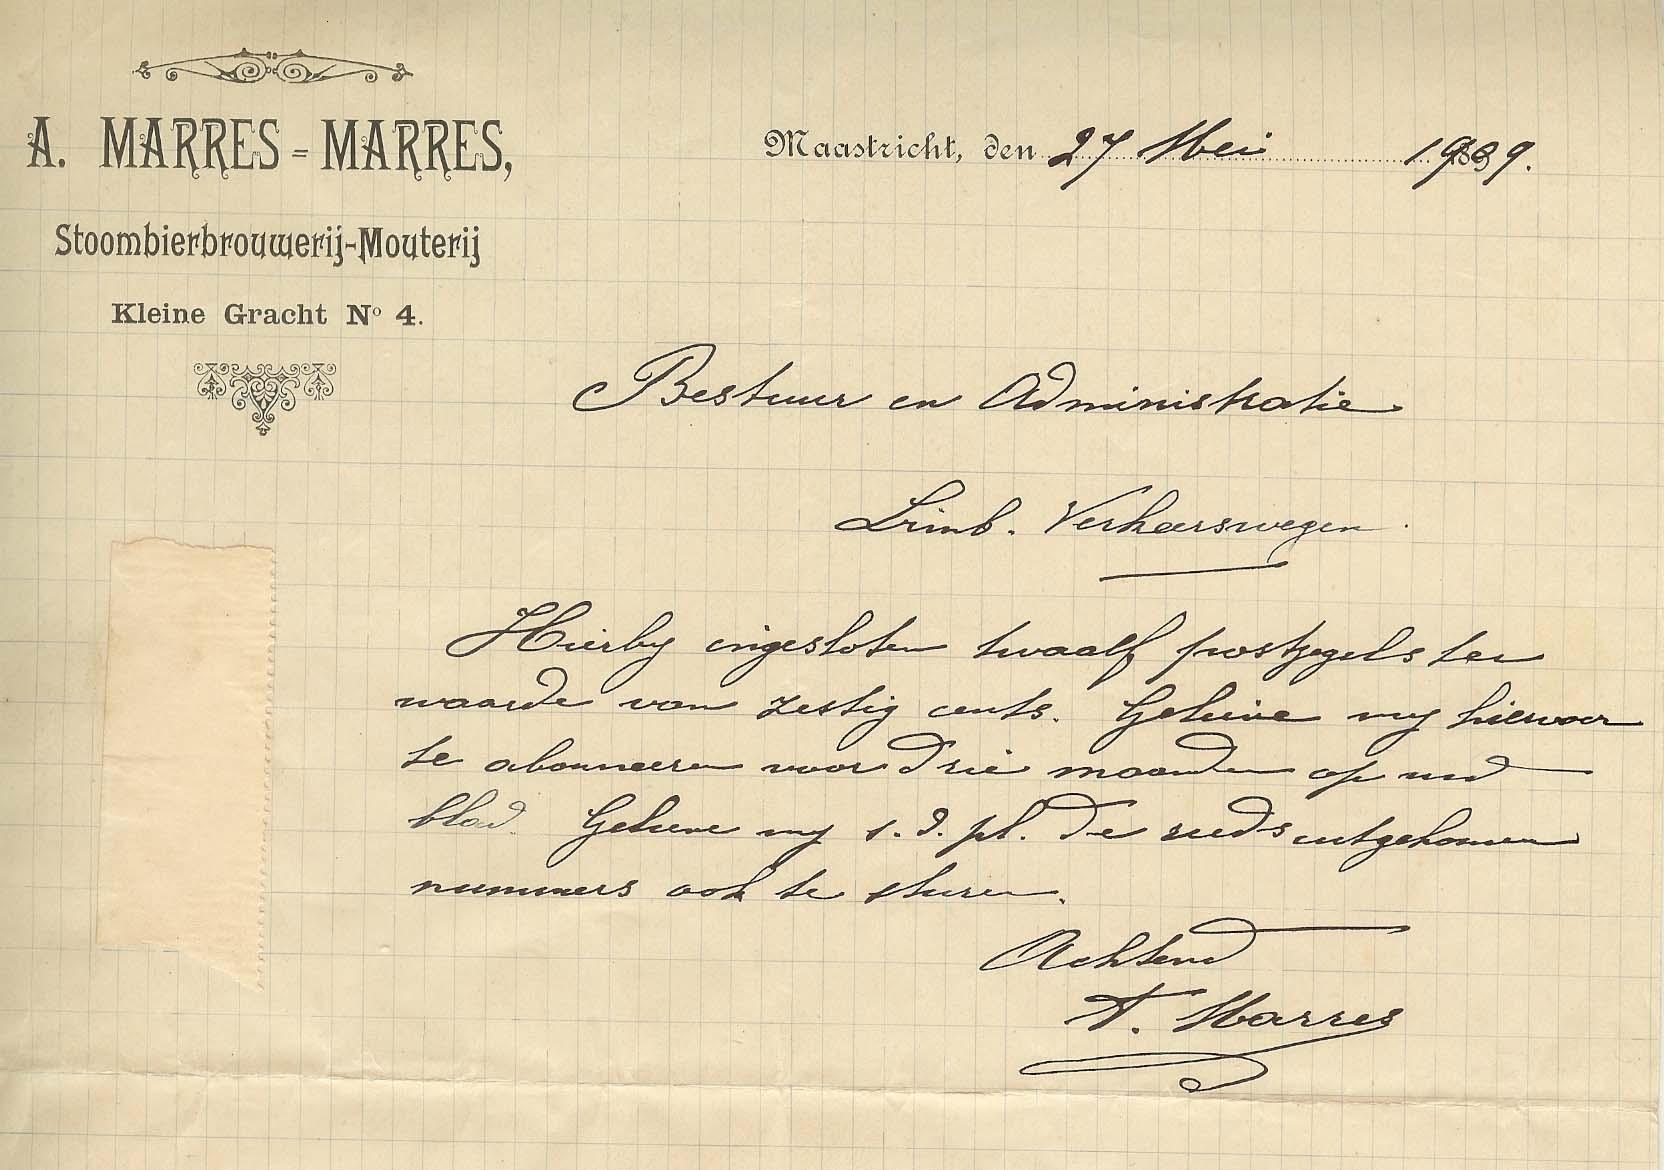 A. MARRES = MARRES,
Stoombierbrouwerij-Mouterij
Kleine Gracht Nº 4.
Maastricht, den 27 Mei 1909.
Bestuur en Administratie
Limb. Verkeerswegen.
Hierby ingesloten twaalf postzegels ter
waarde van zestig cents. Gelieve my hiervoor
te abonneeren voor drie maanden op uw
blad. Gelieve my s. d. pl. de reeds uitgekomen
nummers ook te sturen.
Achtend
A. Marres